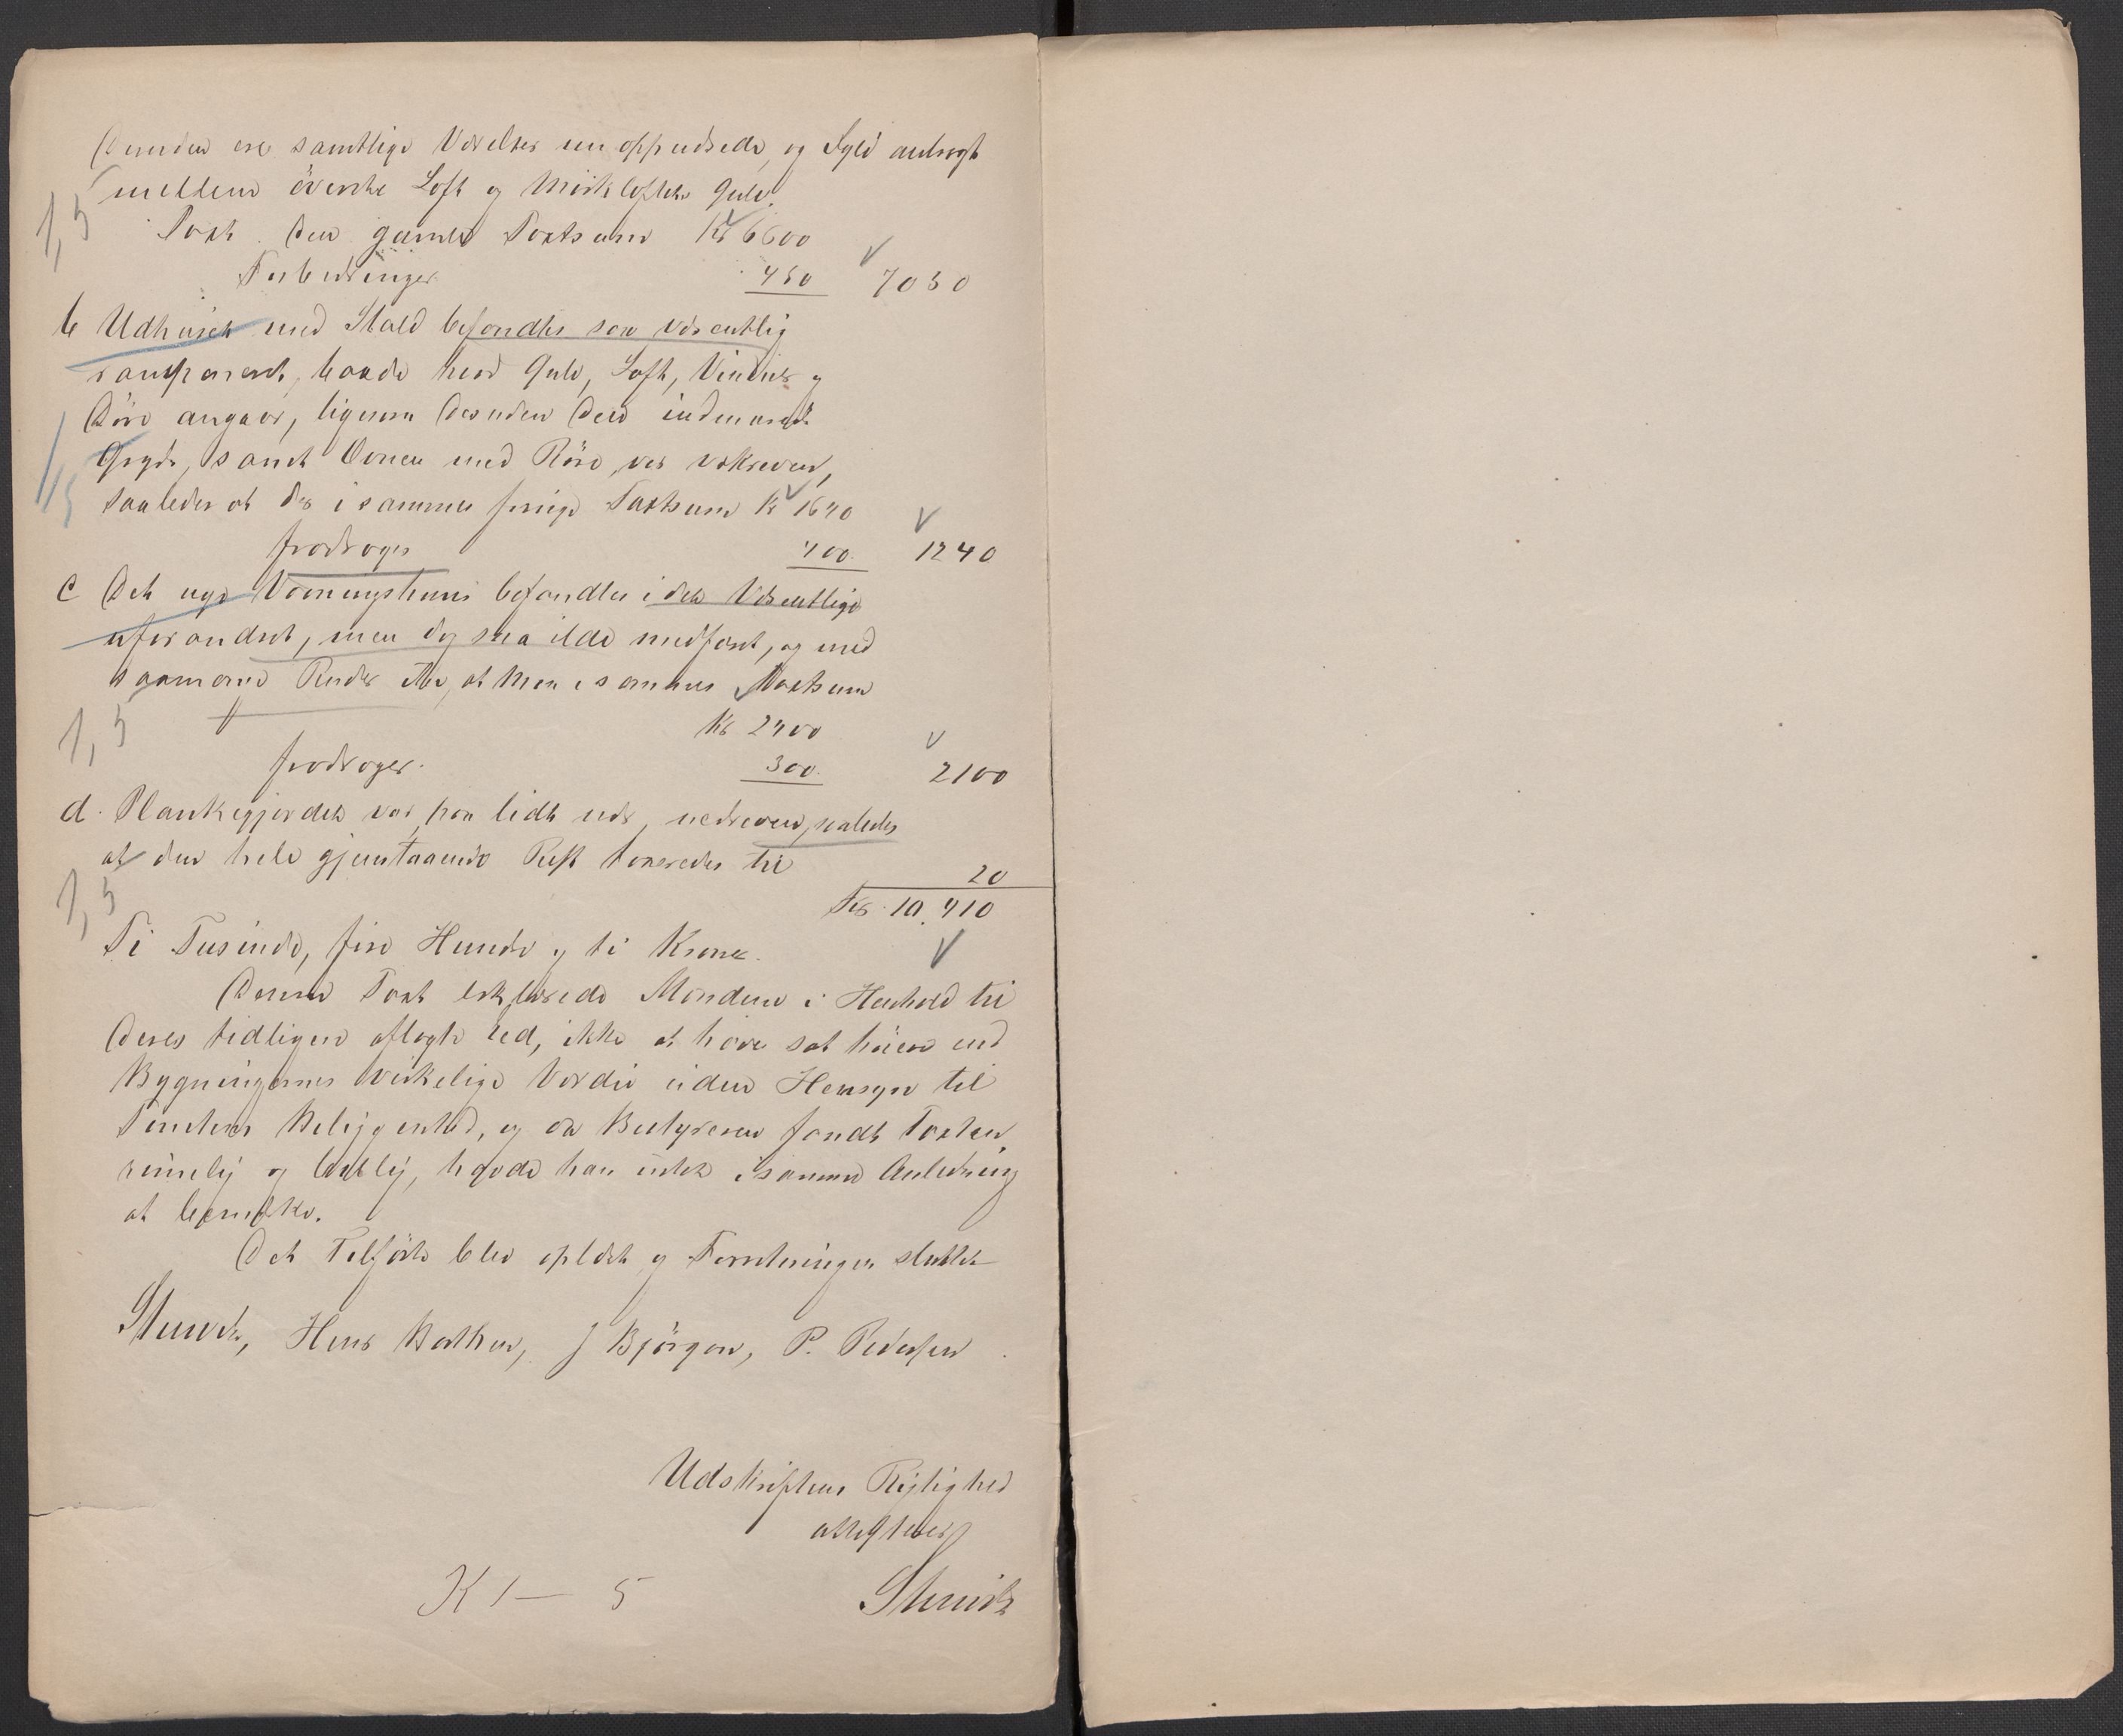 Desuden ere samtlige Værelser nu oppudsede, og Fyld anbragt
mellem överste Loft og Mörkloftets Gulv.
1,5
Taxt. Den gamle Taxtsum Kr 6600
Forbedringer 450 7050
b Udhuset med Stald befandtes saa væsentlig
ramponeret, baade hvad Gulv, Loft, Vinduer og
Döre angaar, ligesom desuden den indmurede
Gryde, samt Ovnen med Röre, var
1,5
saaledes at der i sammes forrige Taxtsum Kr 1640
fradrages 400. 1240
c Det nye Vaaningshuus befandtes i det Væsentlige
uforandret, men dog saa ilde medfaret, og med
Ruder itu, at Man i sammes Taxtsum
Kr 2400
1,5
fradrages. 300. 2100
d. Plankegjerdet var paa lidt nær nedrevet, saaledes
at den hele gjenstaaende Rest taxeredes til 20
1,5
Kr. 10.410
Ti Tusinde, fire Hundre og ti Kroner.
Denne Taxt erklærede Mændene i Henhold til
deres tidligere aflagte Ed, ikke at have sat höiere end
Bygningernes virkelige Værdie uden Hensyn til
Tomtens Beliggenhed, og da Bestyreren fandt Taxten
rimelig og billig, havde han intet i samme Anledning
at bemærke.
Det Tilförte blev oplæst og Forretningen sluttet
Hans Barthen, J Björgan, P. Pedersen.
Udskriftens Rigtighed
attesterer
K 1 — 5